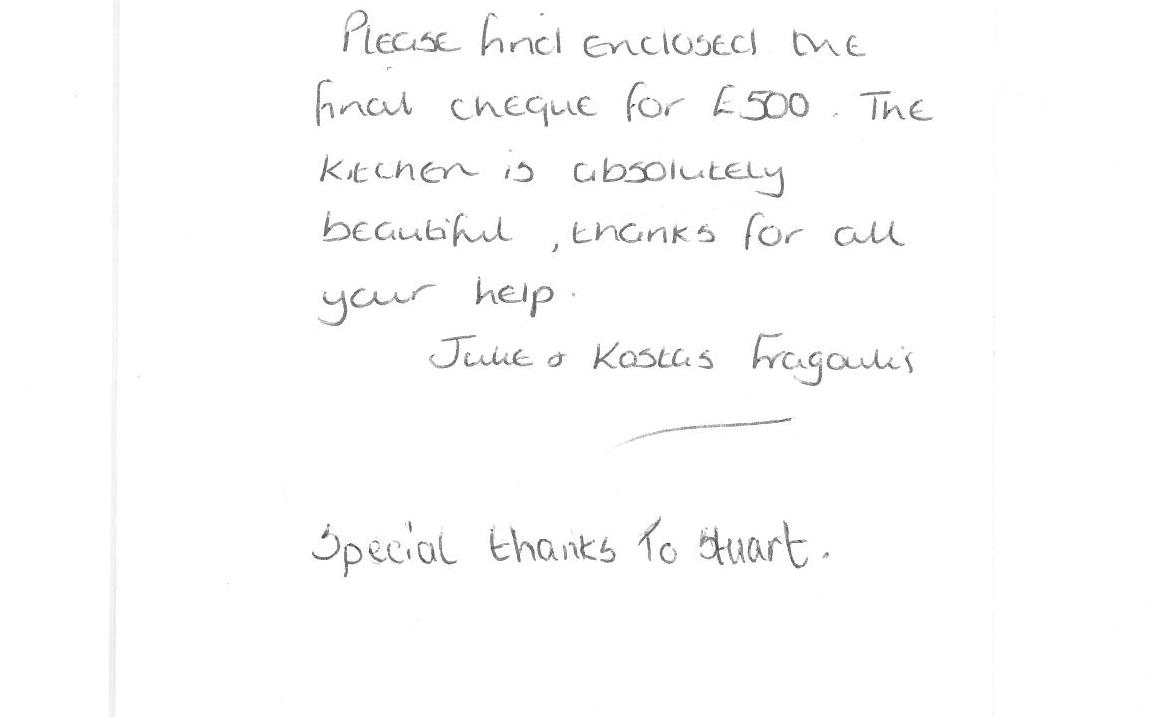 Please find enclosed the
final cheque for £500. The
kitchen is absolutely
beautiful, thanks for all
your help.
Julie & Kostas Fragoulis
Special thanks to Stuart.